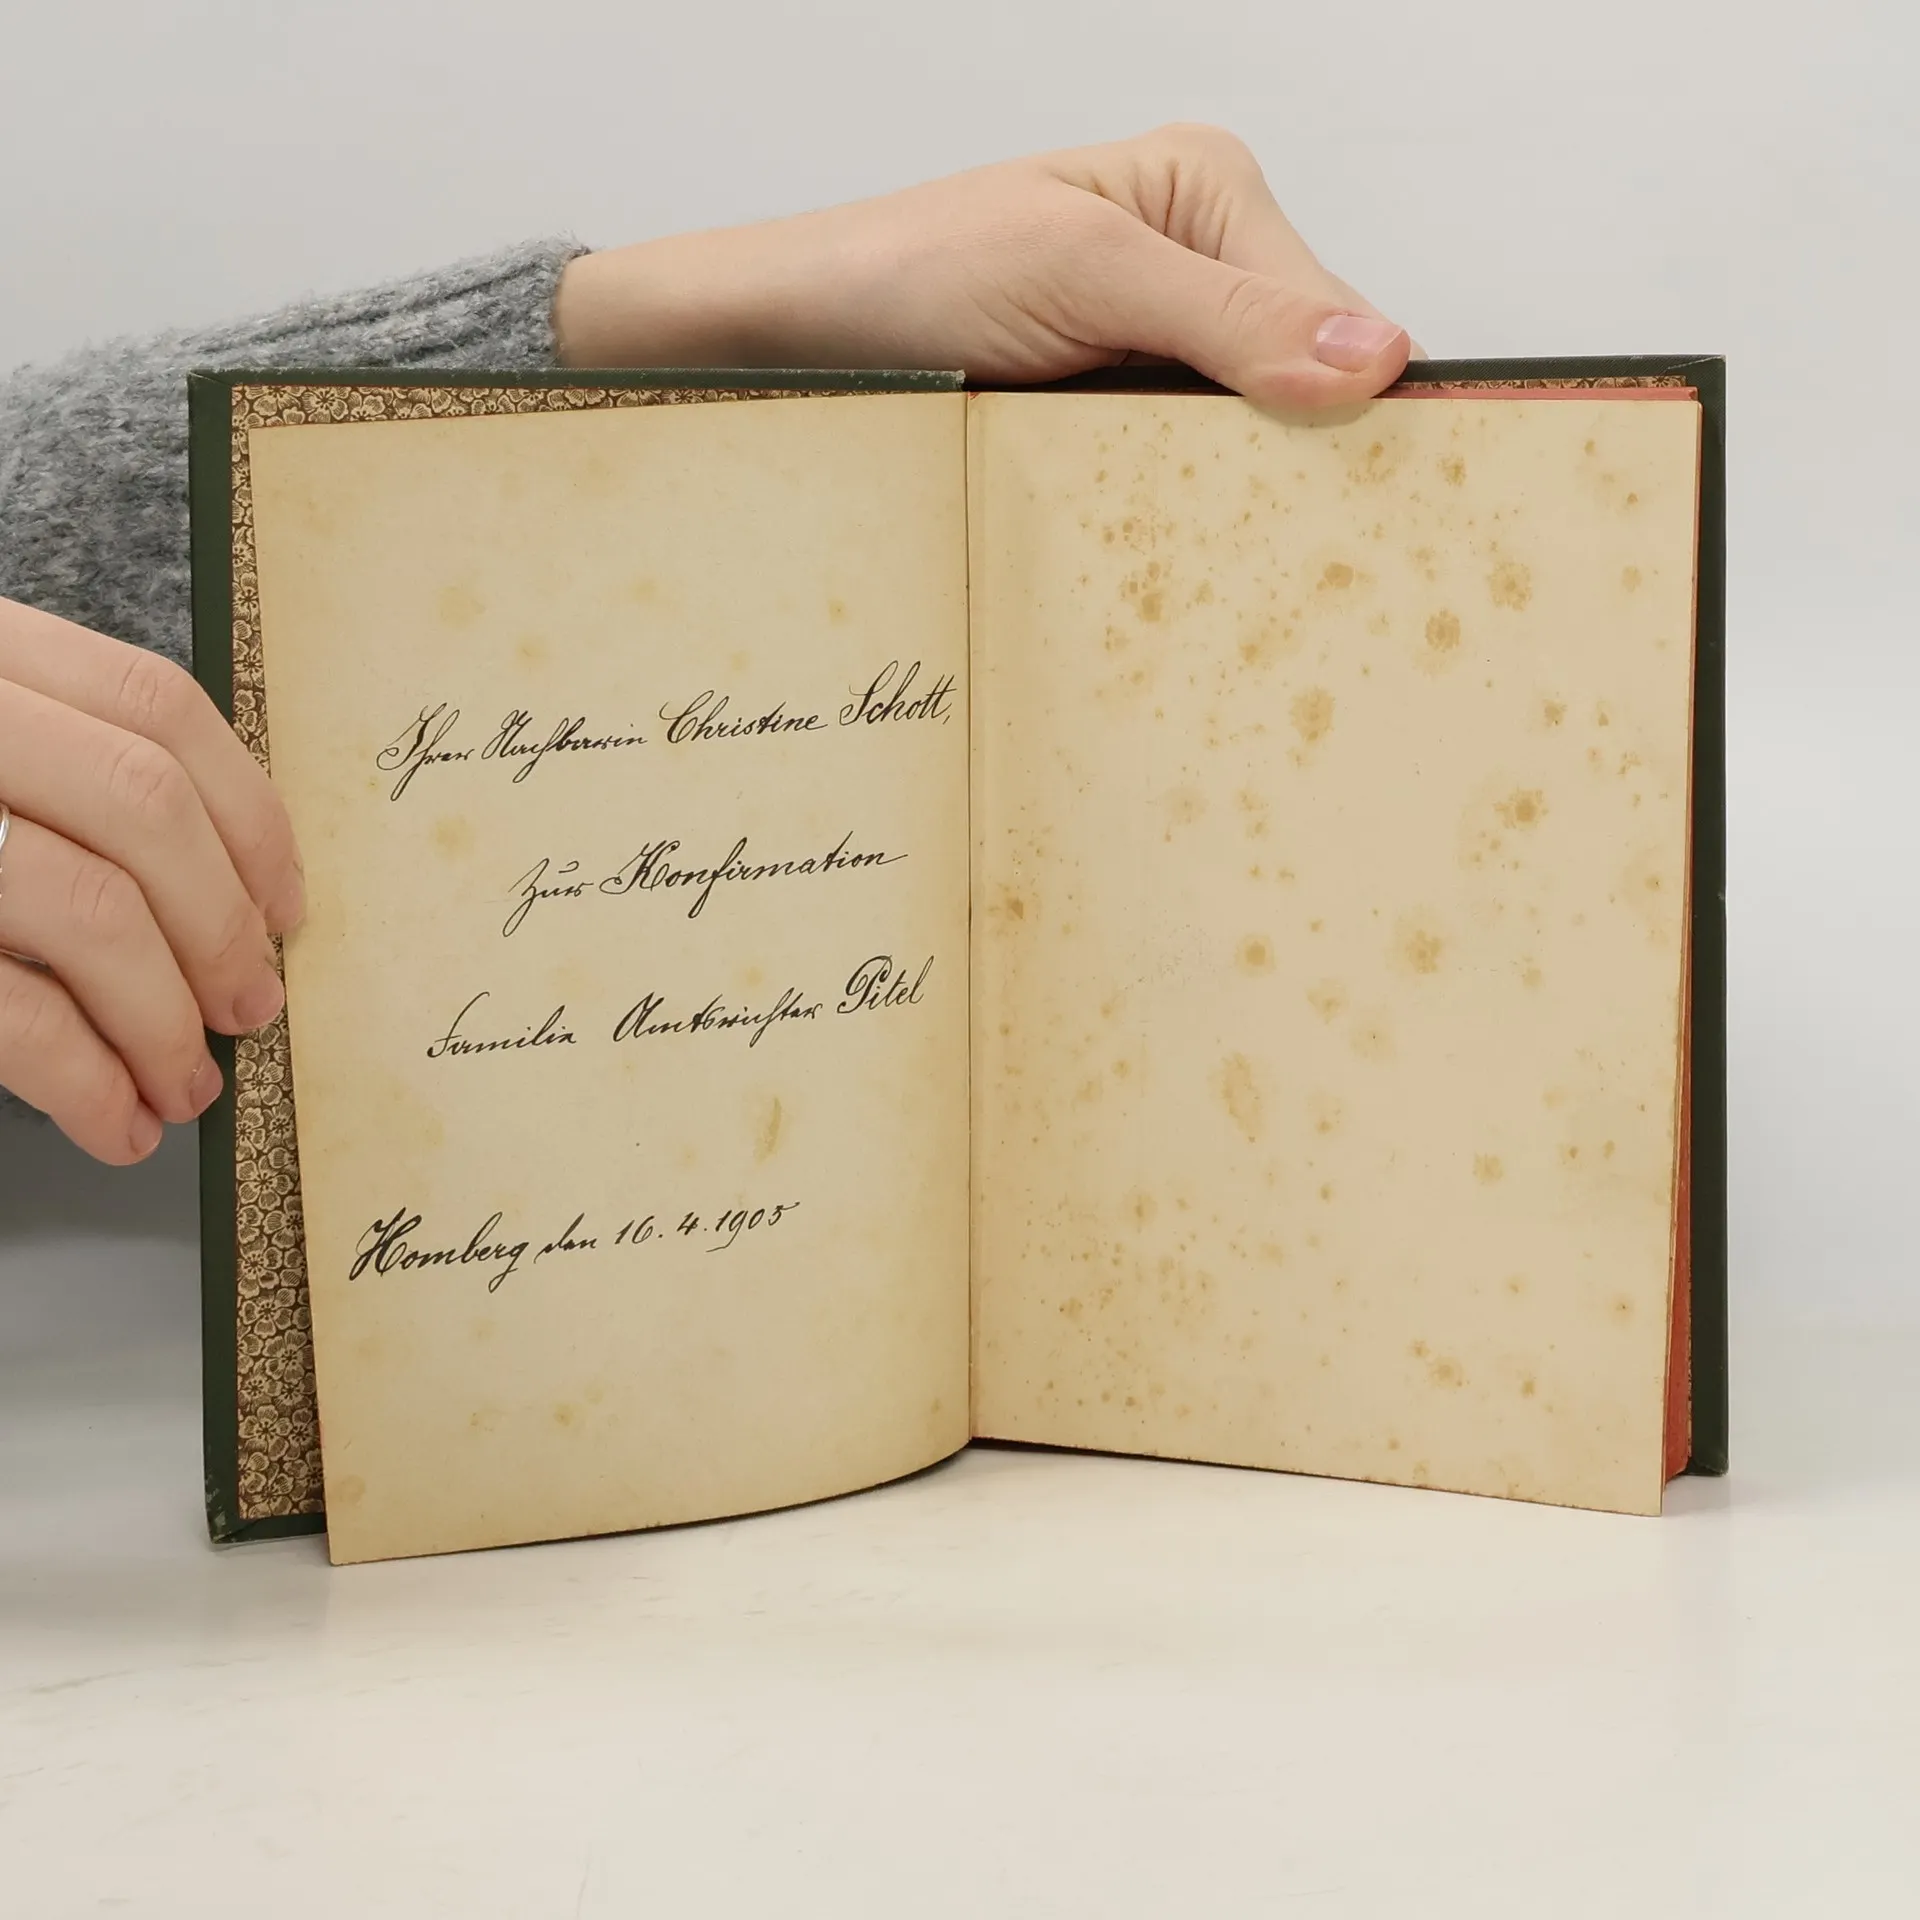 Ihrer Nachbarin Christine Schott,
zur Konfirmation
Familie Amtsrichter Pitel
Homberg den 16.4.1905